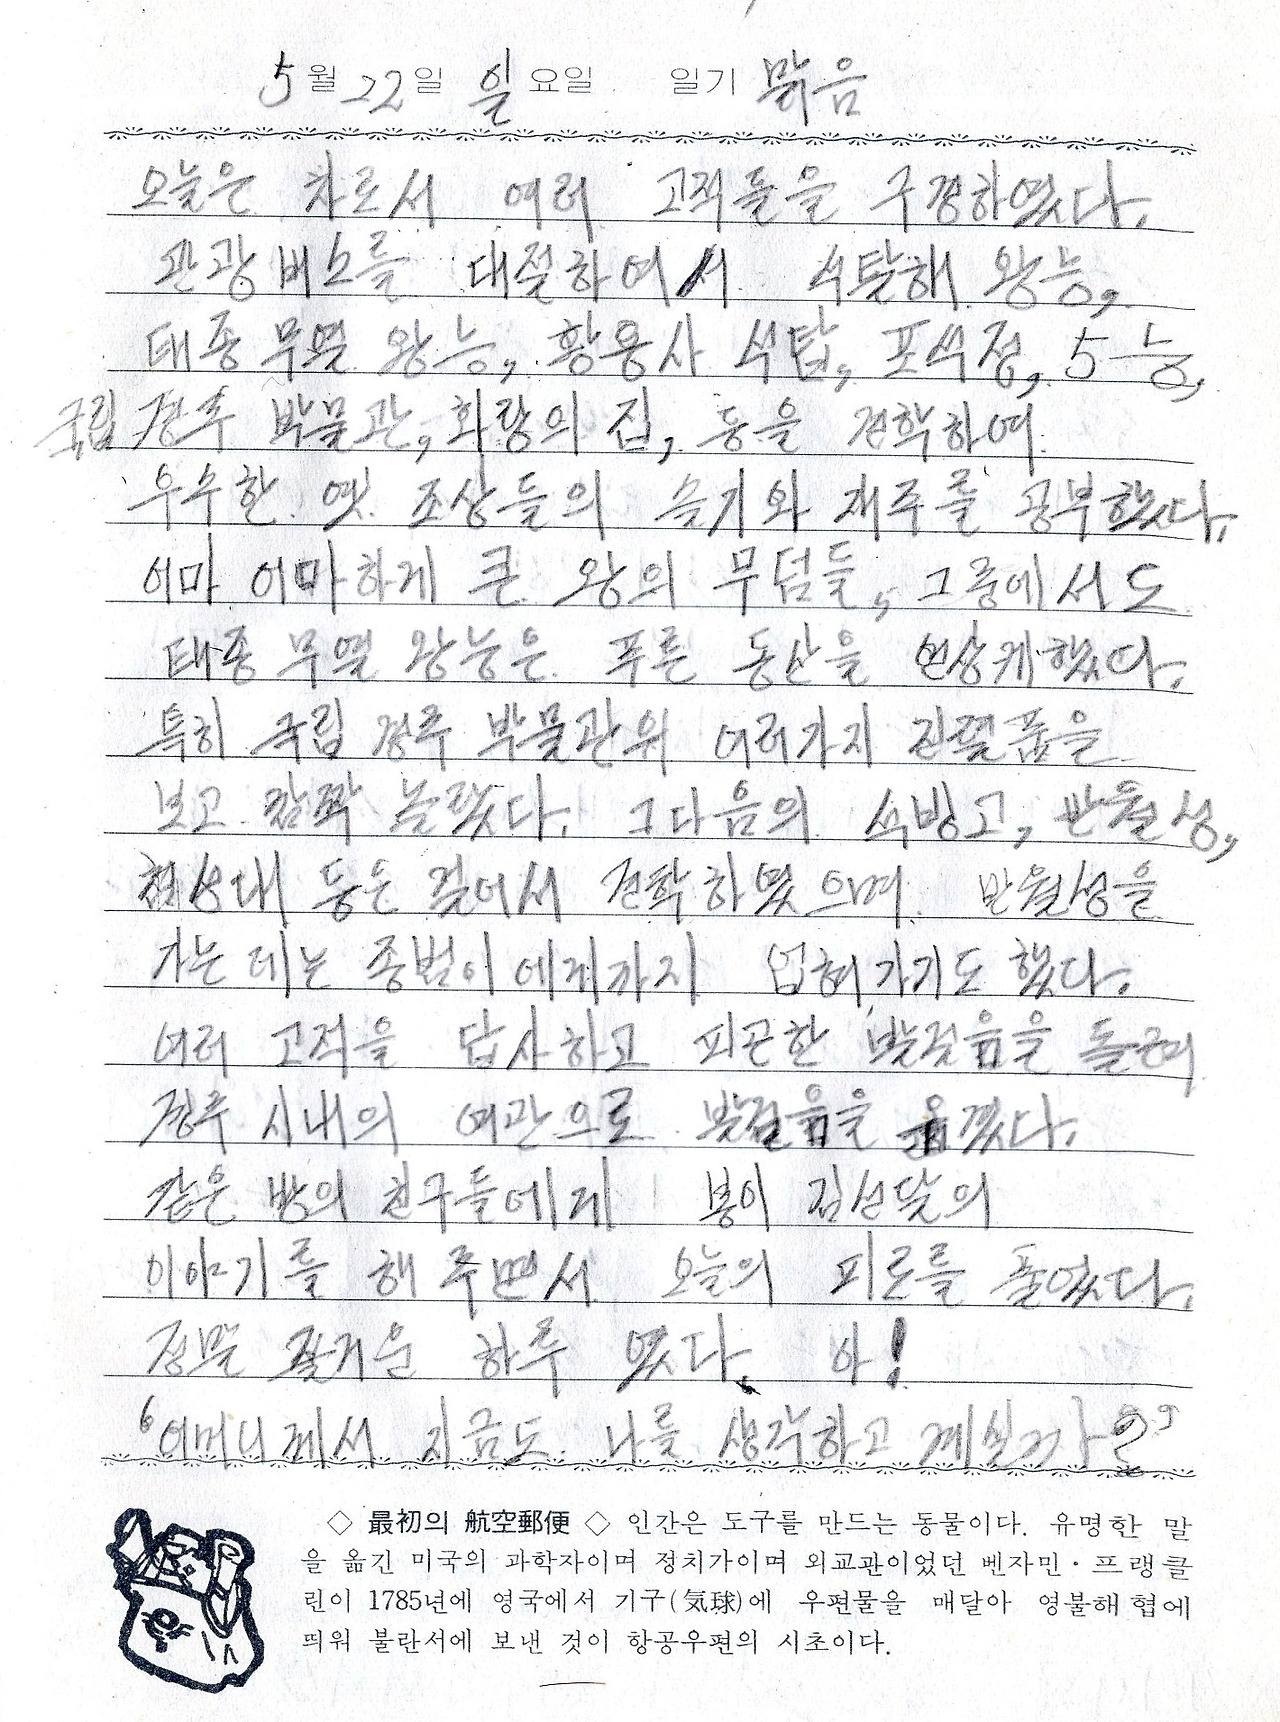 5월 22일 일요일 일기 맑음
오늘은 차로서 여러 고적들을 구경하였다.
관광버스를 대절하여서 석탈해 왕능,
태종 무열 왕능, 황용사 석탑, 포석정, 5능,
국립 경주 박물관, 화랑의 집, 등을 견학하여
우수한 옛 조상들의 슬기와 재주를 공부했다.
어마 어마하게 큰 왕의 무덤들, 그중에서도
태종 무열 왕능은 푸른 동산을 연상케했다.
특히 국립 경주 박물관위 여러가지 진열품을
보고 깜짝 놀랐다. 그다음의 석빙고, 반월성,
첨성대 등은 걸어서 견학하였으며 반월성을
가는데는 종범이에게까지 업혀가기도 했다.
여러 고적을 답사하고 피곤한 발걸음을 돌려
경주 시내의 여관으로 발걸음을 옮겼다.
같은 방의 친구들에게 봉이 김선달의
이야기를 해 주면서 오늘의 피로를 풀었다.
정말 즐거운 하루 였다. 아!
“어머니께서 지금도 나를 생각하고 계실까?”
◇ 最初의 航空郵便 ◇ 인간은 도구를 만드는 동물이다. 유명한 말
을 옮긴 미국의 과학자이며 정치가이며 외교관이었던 벤자민·프랭클
린이 1785년에 영국에서 기구(気球)에 우편물을 매달아 영불해협에
띄워 불란서에 보낸 것이 항공우편의 시초이다.